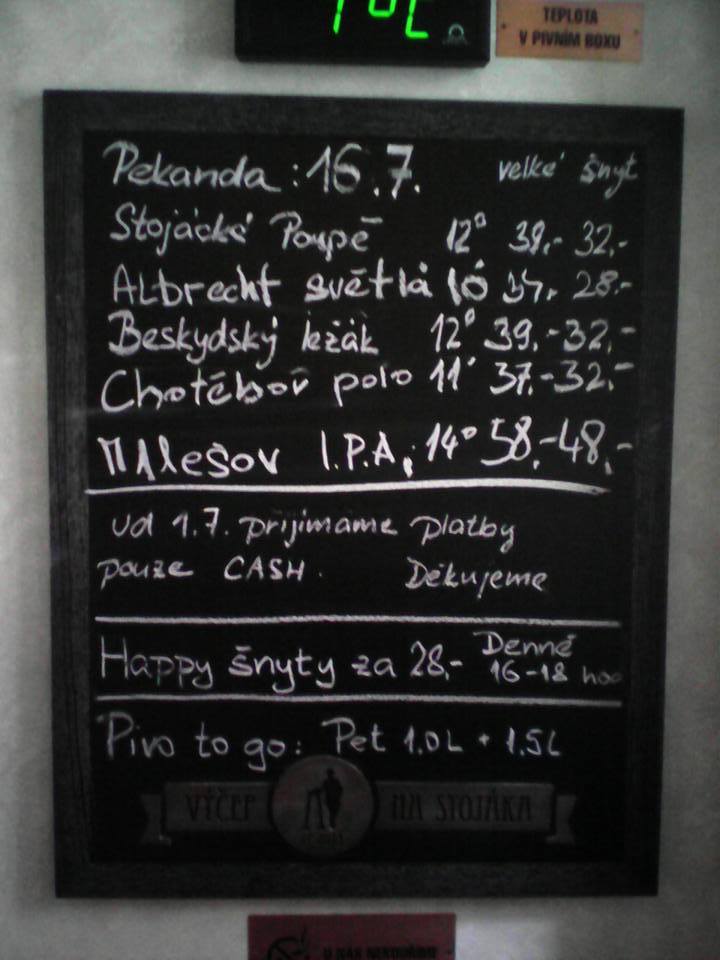 1°C
TEPLOTA
V PIVNÍM BOXU
Pekanda : 16.7. velké šnyt
Stojácké Poupě 12° 39,- 32,-
ALbrecht světlá 10 34,- 28,-
Beskydský ležák 12° 39,- 32,-
Chotěboř polo 11° 37,- 32,-
MAlešov I.P.A, 14° 58,- 48,-
od 1.7. přijímáme platby
pouze CASH. Děkujeme
Happy šnyty za 28,- Denně
16-18 hod
Pivo to go: Pet 1.0L + 1.5L
VÝČEP NA STOJÁKA
U NÁS NEKOUŘÍME